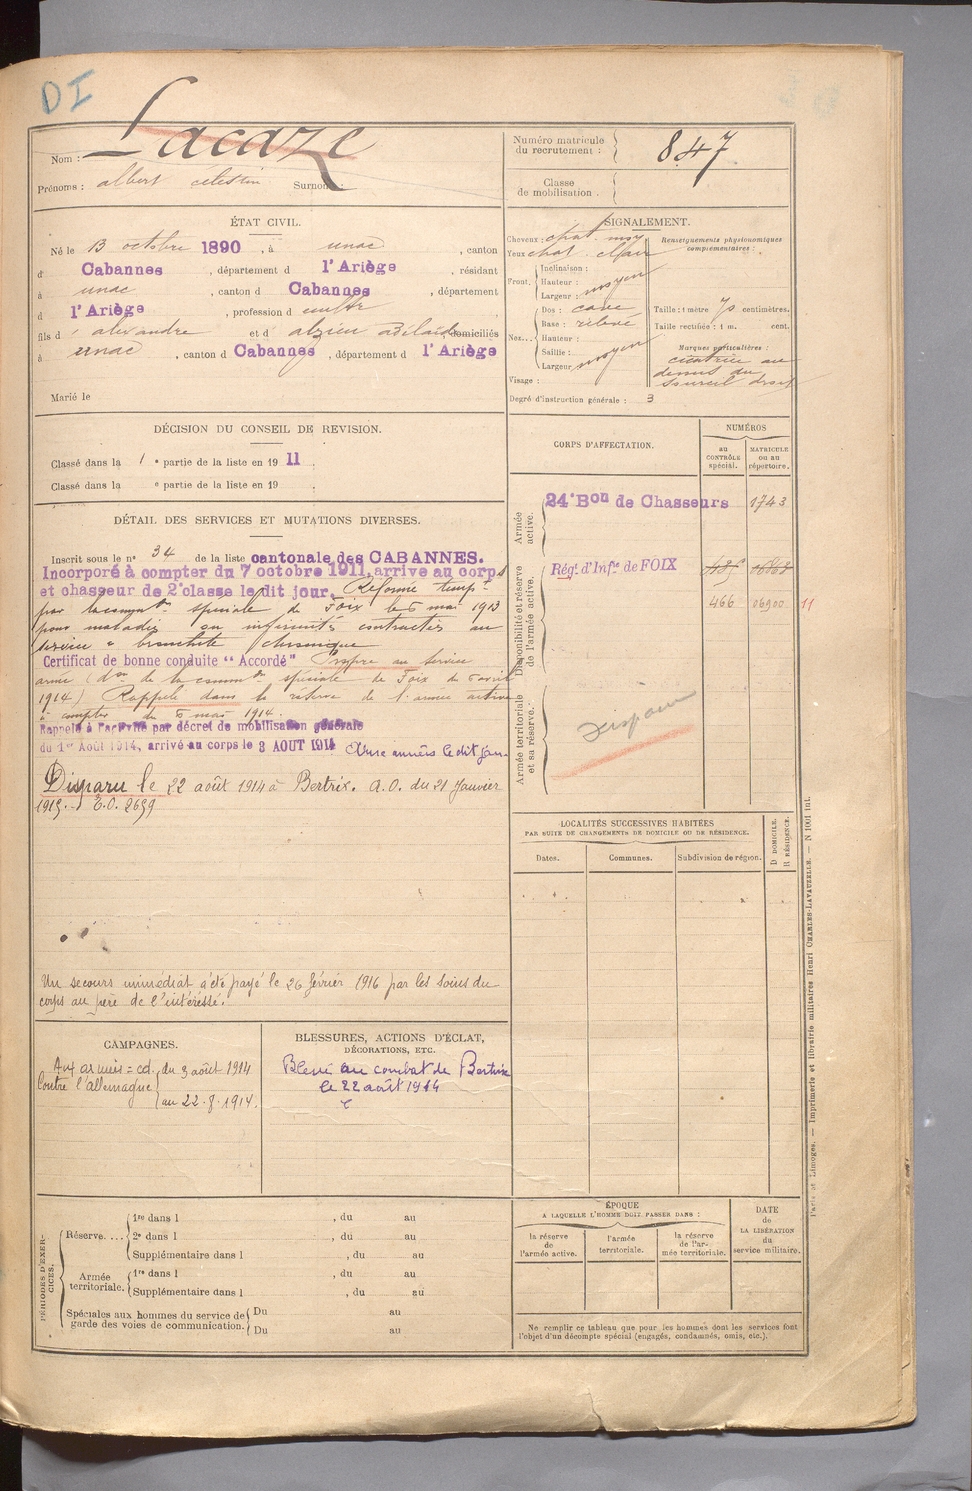 DI
Nom : Lacaze
Prénoms : albert celestin Surnom :
Numéro matricule
du recrutement : 847
Classe
de mobilisation .
ÉTAT CIVIL.
Né le 13 octobre 1890 , à unac , canton
d Cabannes , département d l'Ariège , résidant
à unac , canton d Cabannes , département
d l'Ariège , profession d
fils d' alexandre et d' alzieu adélaïde domiciliés
à unac , canton d Cabannes , département d l'Ariège
Marié le
SIGNALEMENT.
Cheveux : chat. moy
Yeux chat. clair
Renseignements physionomiques
complémentaires :
Front. Inclinaison :
Hauteur : moyen
Largeur :
Nez... Dos : cave
Base : relevé
Hauteur :
Saillie : moyen
Largeur
Visage :
Degré d'instruction générale : 3
Taille : 1 mètre 70 centimètres.
Taille rectifiée : 1 m. cent.
Marques particulières :
cicatrice au
dessus du
sourcil droit
DÉCISION DU CONSEIL DE REVISION.
Classé dans la 1 e partie de la liste en 19 11 .
Classé dans la e partie de la liste en 19 .
CORPS D'AFFECTATION.
NUMÉROS
au
CONTRÔLE
spécial.
MATRICULE
ou au
répertoire.
Armée
active.
24e Bon de Chasseurs 1743
Disponibilité et réserve
de l'armée active.
Régt. d'Infie de FOIX
466 06900 11
Armée territoriale
et sa réserve.
Disparu
DÉTAIL DES SERVICES ET MUTATIONS DIVERSES.
Inscrit sous le no 34 de la liste cantonale des CABANNES.
Incorporé à compter du 7 octobre 1911, arrive au corps
et chasseur de 2e classe le dit jour. Réformé tempre
par la common spéciale de Foix le 5 mai 1913
pour maladies ou infirmités contractées au
service « bronchite chronique »
Certificat de bonne conduite "Accordé" Propre au service
armé (don de la common spéciale de Foix du 6 avril
1914) Rappelé dans la réserve de l'armée active
à compter du 6 mai 1914.
Rappelé à l'activité par décret de mobilisation générale
du 1er Août 1914, arrivé au corps le 3 AOUT 1914
Disparu le 22 août 1914 à Bertrix. A.O. du 21 Janvier
1915. E.O. 2699
Un secours immédiat a été payé le 26 février 1916 par les soins du
corps au père de l'intéressé.
LOCALITÉS SUCCESSIVES HABITÉES
PAR SUITE DE CHANGEMENTS DE DOMICILE OU DE RÉSIDENCE.
Dates.
Communes.
Subdivision de région.
D DOMICILE.
R RÉSIDENCE.
CAMPAGNES.
Contre l'allemagne
du 3 août 1914
au 22.8.1914.
BLESSURES, ACTIONS D'ÉCLAT,
DÉCORATIONS, ETC.
Blessé au combat de Bertrix
le 22 août 1914
PÉRIODES D'EXERCICES.
Réserve.... 1re dans l , du au
2e dans l , du au
Supplémentaire dans l , du au
Armée
territoriale. 1re dans l , du au
Supplémentaire dans l , du au
Spéciales aux hommes du service de
garde des voies de communication. Du au
Du au
ÉPOQUE
A LAQUELLE L'HOMME DOIT PASSER DANS :
la réserve
de
l'armée active.
l'armée
territoriale.
la réserve
de l'ar-
mée territoriale.
DATE
de
LA LIBÉRATION
du
service militaire.
Ne remplir ce tableau que pour les hommes dont les services font
l'objet d'un décompte spécial (engagés, condamnés, omis, etc.).
Paris et Limoges. — Imprimerie et librairie militaires Henri CHARLES-LAVAUZELLE. — N 1001 int.